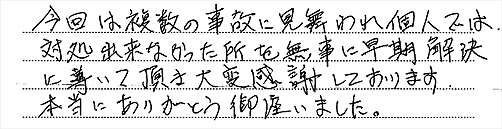 今回は複数の事故に見舞われ個人では.
対処出来なかった所を無事に早期解決
に導いて頂き大変感謝しております.
本当にありがとう御座いました。